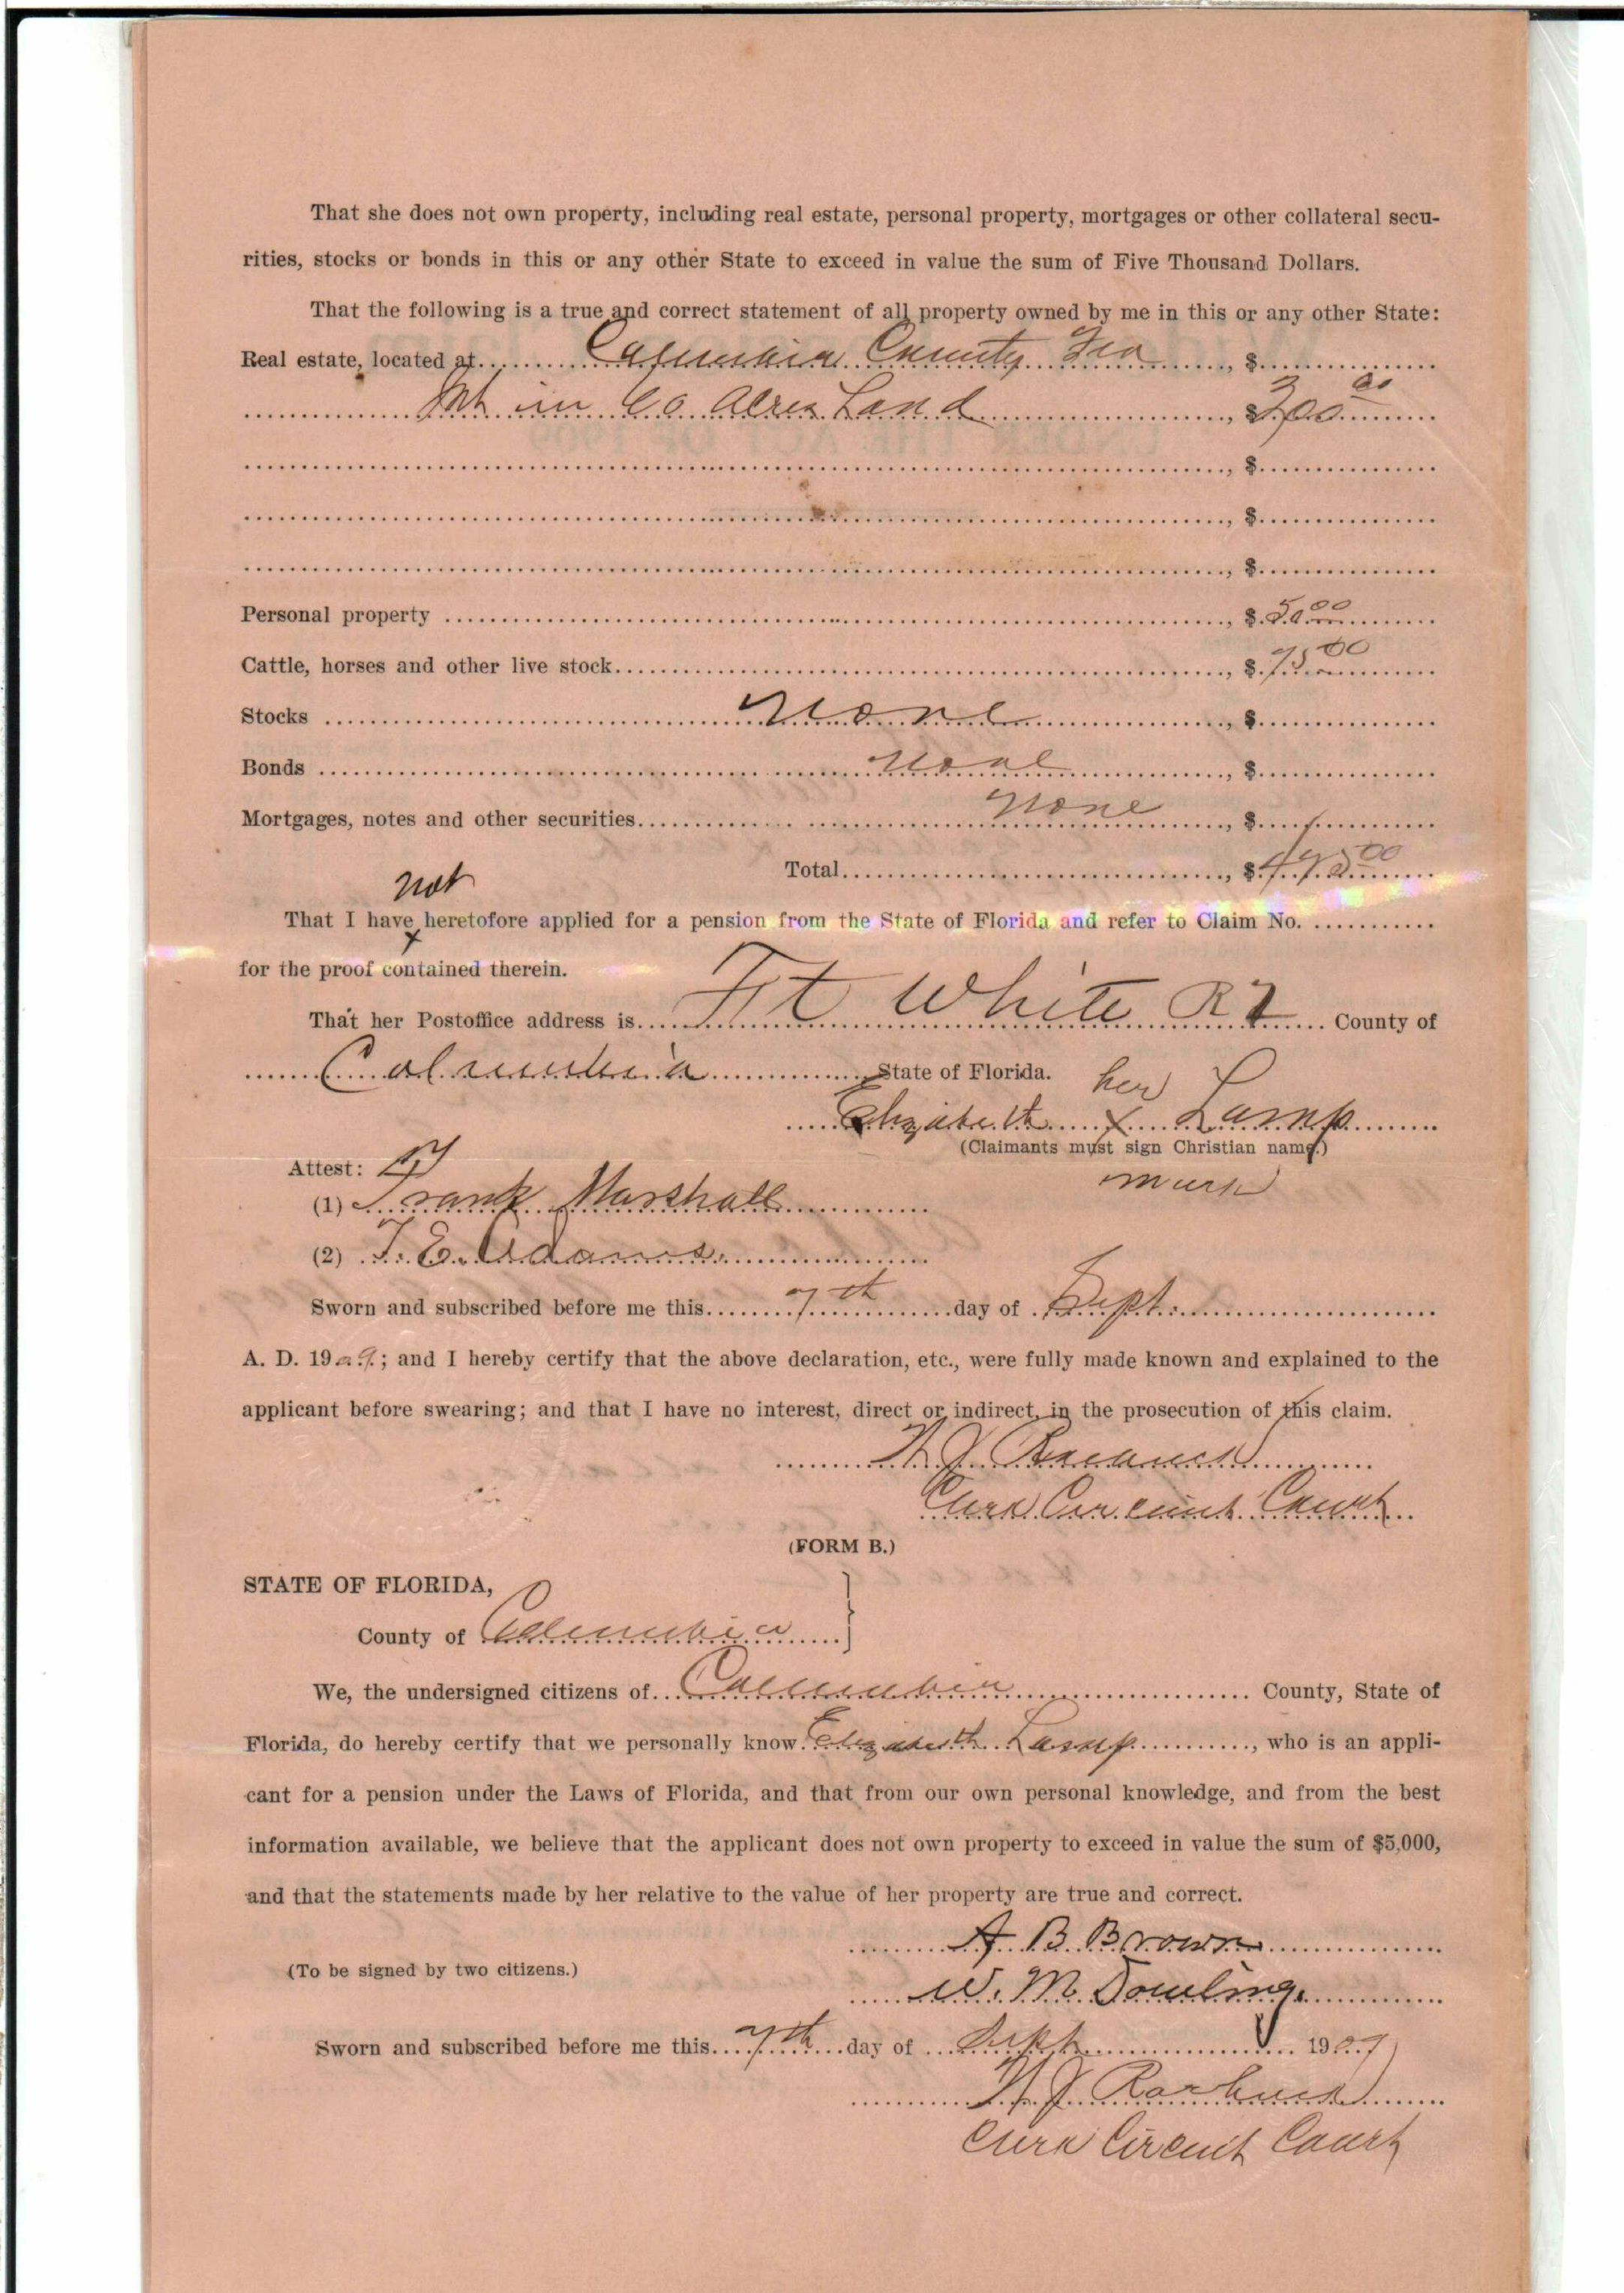 That she does not own property, including real estate, personal property, mortgages or other collateral secu-
rities, stocks or bonds in this or any other State to exceed in value the sum of Five Thousand Dollars.
That the following is a true and correct statement of all property owned by me in this or any other State:
Real estate, located at Columbia County Fla, $
Int in 60 Acres Land, $300.00
, $
, $
, $
Personal property, $50.00
Cattle, horses and other live stock, $75.00
Stocks None, $
Bonds None, $
Mortgages, notes and other securities None, $
Total, $
not
That I have heretofore applied for a pension from the State of Florida and refer to Claim No.
for the proof contained therein.
That her Postoffice address is Ft White R 2 County of
Columbia State of Florida.
her
Elizabeth x Lamp
(Claimants must sign Christian name.)
mark
Attest:
(1) Frank Marshall
(2) T. E. Adams
Sworn and subscribed before me this 7th day of Sept.
A. D. 1909; and I hereby certify that the above declaration, etc., were fully made known and explained to the
applicant before swearing; and that I have no interest, direct or indirect, in the prosecution of this claim.
Clerk Circuit Court
(FORM B.)
STATE OF FLORIDA,
County of Columbia
We, the undersigned citizens of Columbia County, State of
Florida, do hereby certify that we personally know Elizabeth Lamp, who is an appli-
cant for a pension under the Laws of Florida, and that from our own personal knowledge, and from the best
information available, we believe that the applicant does not own property to exceed in value the sum of $5,000,
and that the statements made by her relative to the value of her property are true and correct.
A B Brown
(To be signed by two citizens.)
W. M. Dowling
Sworn and subscribed before me this 7th day of Sept 1909
Clerk Circuit Court